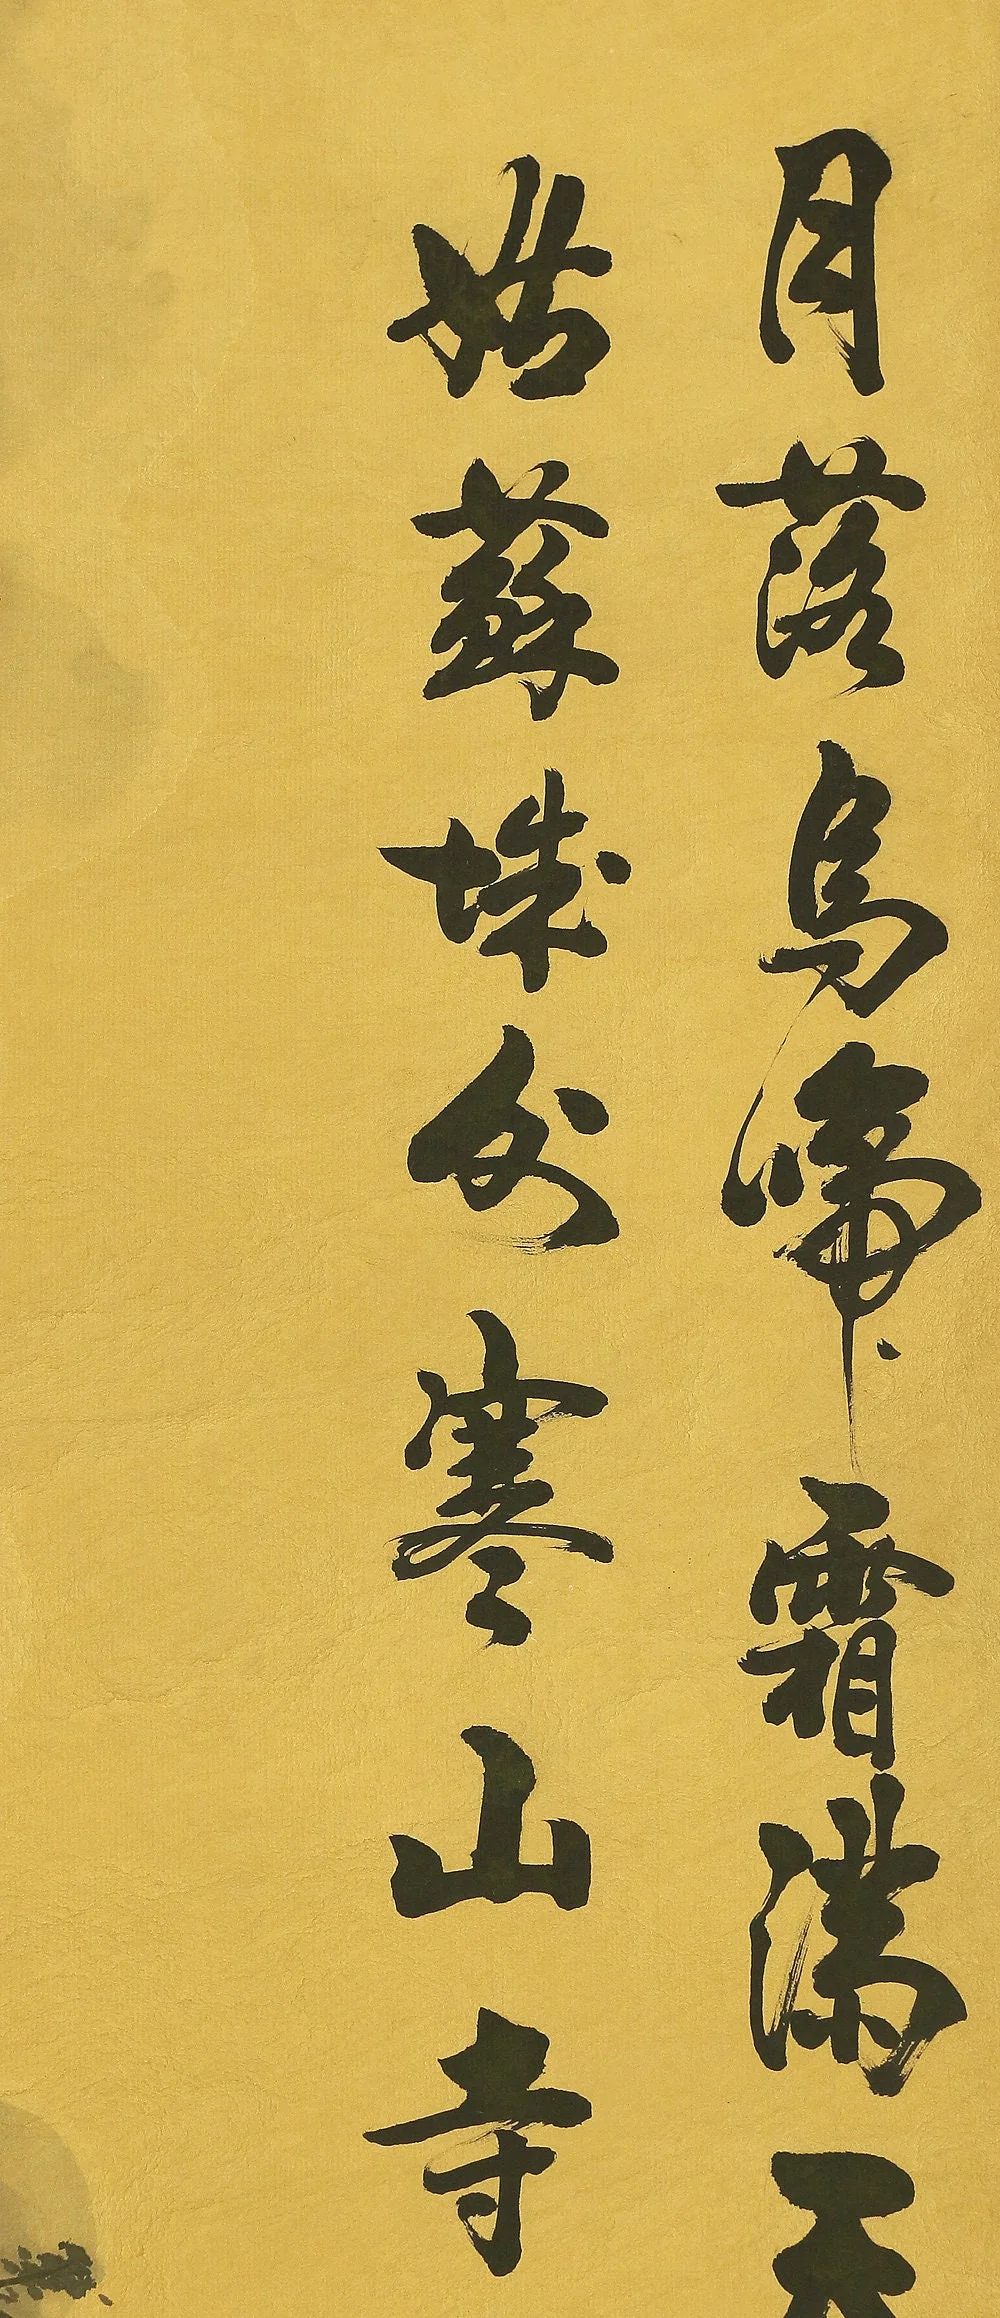 月落烏啼霜滿天
姑蘇城外寒山寺